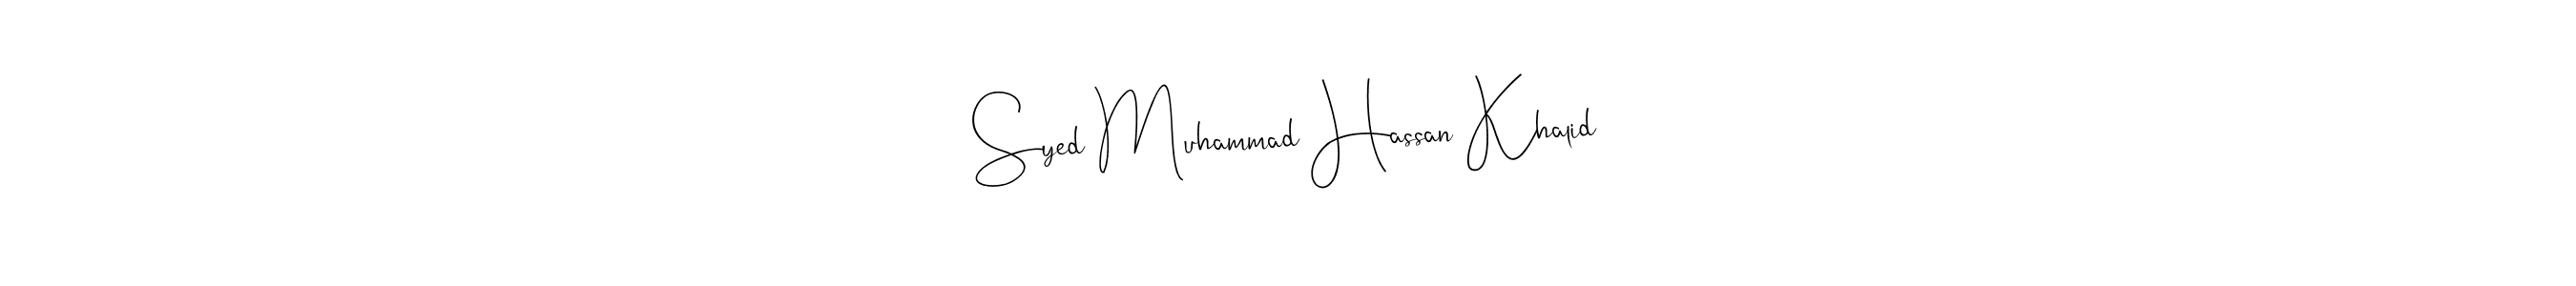 Syed Muhammad Hassan Khalid